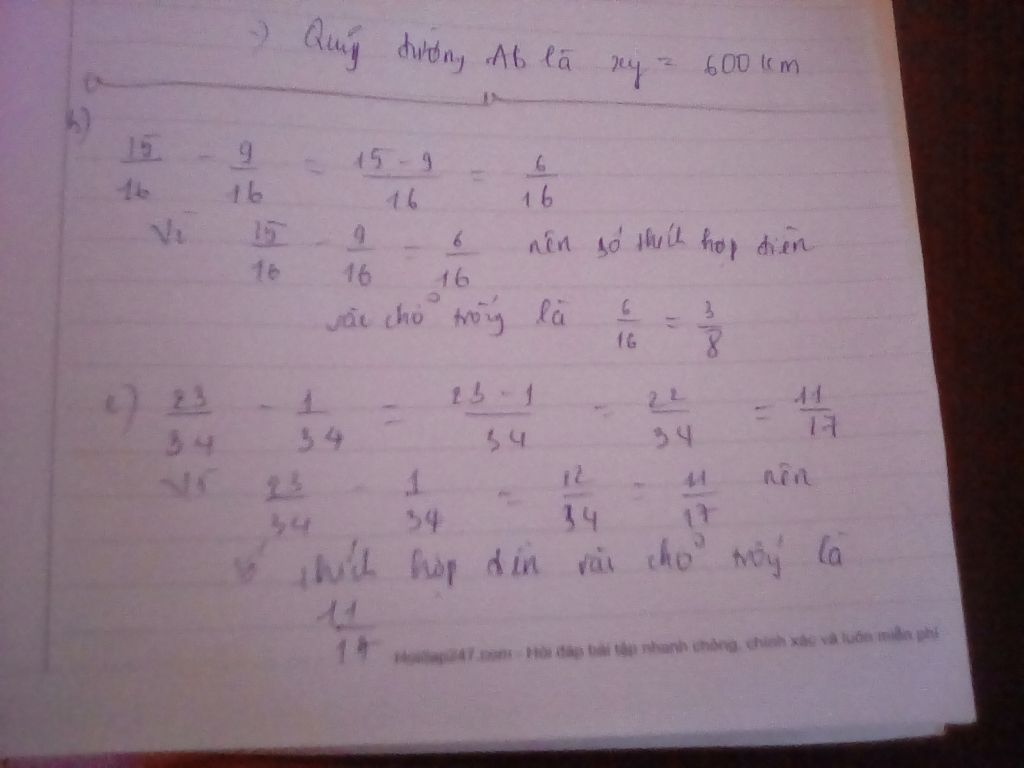 =) Quãng đường Ab là xy = 600 km
b)
15/16 - 9/16 = 15-9/16 = 6/16
Vì 15/16 - 9/16 = 6/16 nên số thích hợp điền
vào chỗ trống là 6/16 = 3/8
c) 23/34 - 1/34 = 23-1/34 = 22/34 = 11/17
Vì 23/34 - 1/34 = 12/34 = 11/17 nên
số thích hợp điền vào chỗ trống là
11/17
Hoidap247.com - Hỏi đáp bài tập nhanh chóng, chính xác và luôn miễn phí